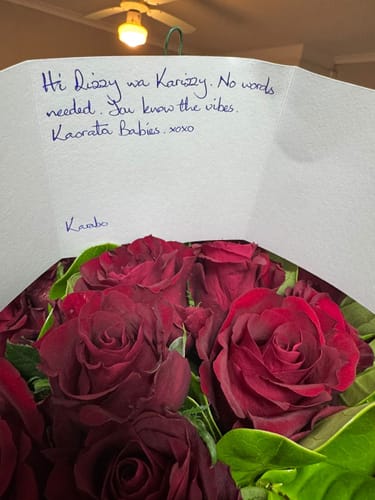 Hi Rizzy wa Karizzy. No words
needed. You know the vibes.
Kaorata Babies. xoxo
Karabo